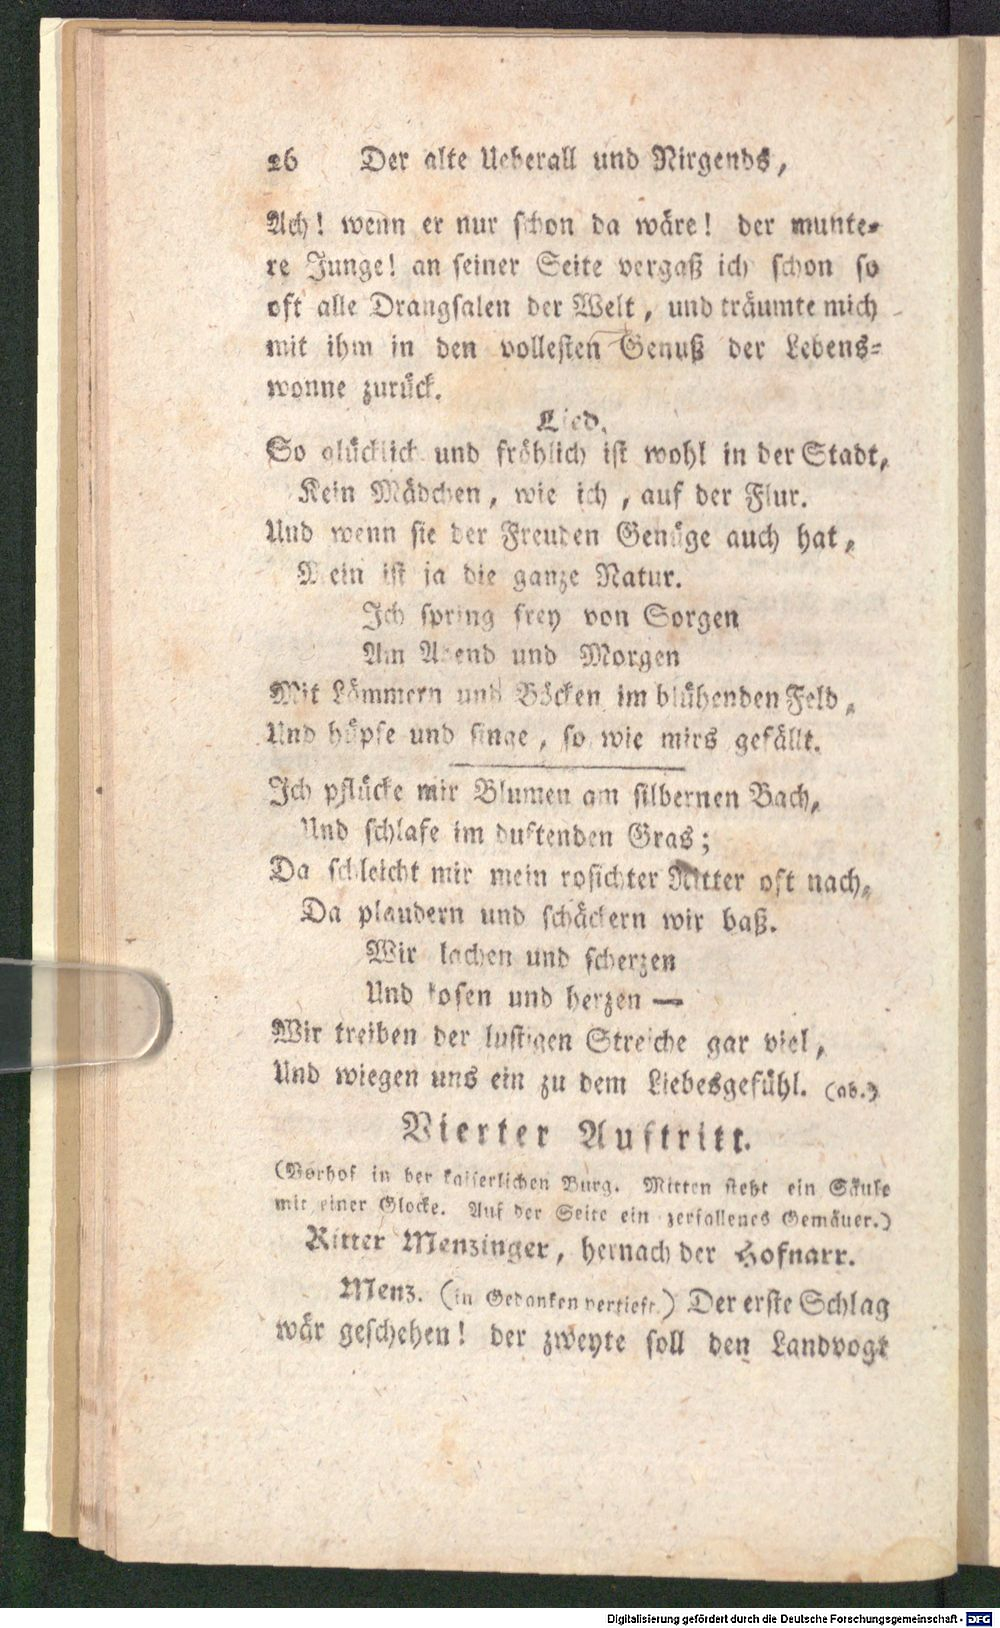 26 Der alte Ueberall und Nirgends,
Ach! wenn er nur schon da wäre! der munte-
re Junge! an seiner Seite vergaß ich schon so
oft alle Drangsalen der Welt, und träumte mich
mit ihm in den vollesten Genuß der Lebens-
wonne zurück.
Lied.
So glücklich und fröhlich ist wohl in der Stadt,
Kein Mädchen, wie ich, auf der Flur.
Und wenn sie der Freuden Genüge auch hat,
Mein ist ja die ganze Natur.
Ich spring frey von Sorgen
Am Abend und Morgen
Mit Lämmern und Böcken im blühenden Feld,
Und hüpfe und singe, so wie mirs gefällt.
Ich pflücke mir Blumen am silbernen Bach,
Und schlafe im duftenden Gras;
Da schleicht mir mein rosichter Ritter oft nach,
Da plaudern und schäckern wir baß.
Wir lachen und scherzen
Und kosen und herzen —
Wir treiben der lustigen Streiche gar viel,
Und wiegen uns ein zu dem Liebesgefühl. (ab.)
Vierter Auftritt.
(Vorhof in der kaiserlichen Burg. Mitten steht ein Säule
mit einer Glocke. Auf der Seite ein zerfallenes Gemäuer.)
Ritter Menzinger, hernach der Hofnarr.
Menz. (in Gedanken vertieft.) Der erste Schlag
wär geschehen! der zweyte soll den Landvogt
Digitalisierung gefördert durch die Deutsche Forschungsgemeinschaft - DFG